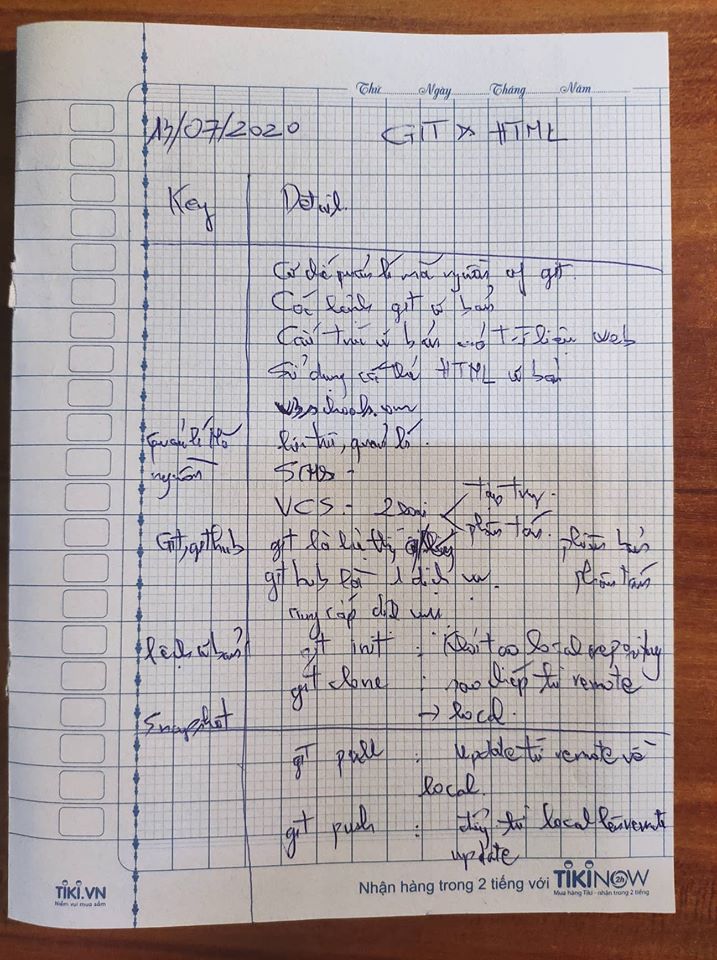 Thứ Ngày Tháng Năm
13/07/2020 GIT & HTML
Key Detail
Cơ chế quản lí mã nguồn of git.
Các lệnh git cơ bản
Cấu trúc cơ bản web
Sử dụng các thẻ HTML cơ bản
w3schools.com
quản lí mã lưu trữ, quản lí.
nguồn SCMS -
VCS - 2 loại tập trung.
phân tán.
Git, github git là hệ thống phiên bản
github là 1 dịch vụ phân tán
cung cấp dịch vụ
lệnh cơ bản git init : Khởi tạo local
git clone : sao chép từ remote
→ local.
Snapshot
git pull : update từ remote về
local.
git push : đẩy từ local lên remote
update
TIKI.VN
Niềm vui mua sắm
Nhận hàng trong 2 tiếng với TIKINOW 2h
Mua hàng Tiki - nhận trong 2 tiếng